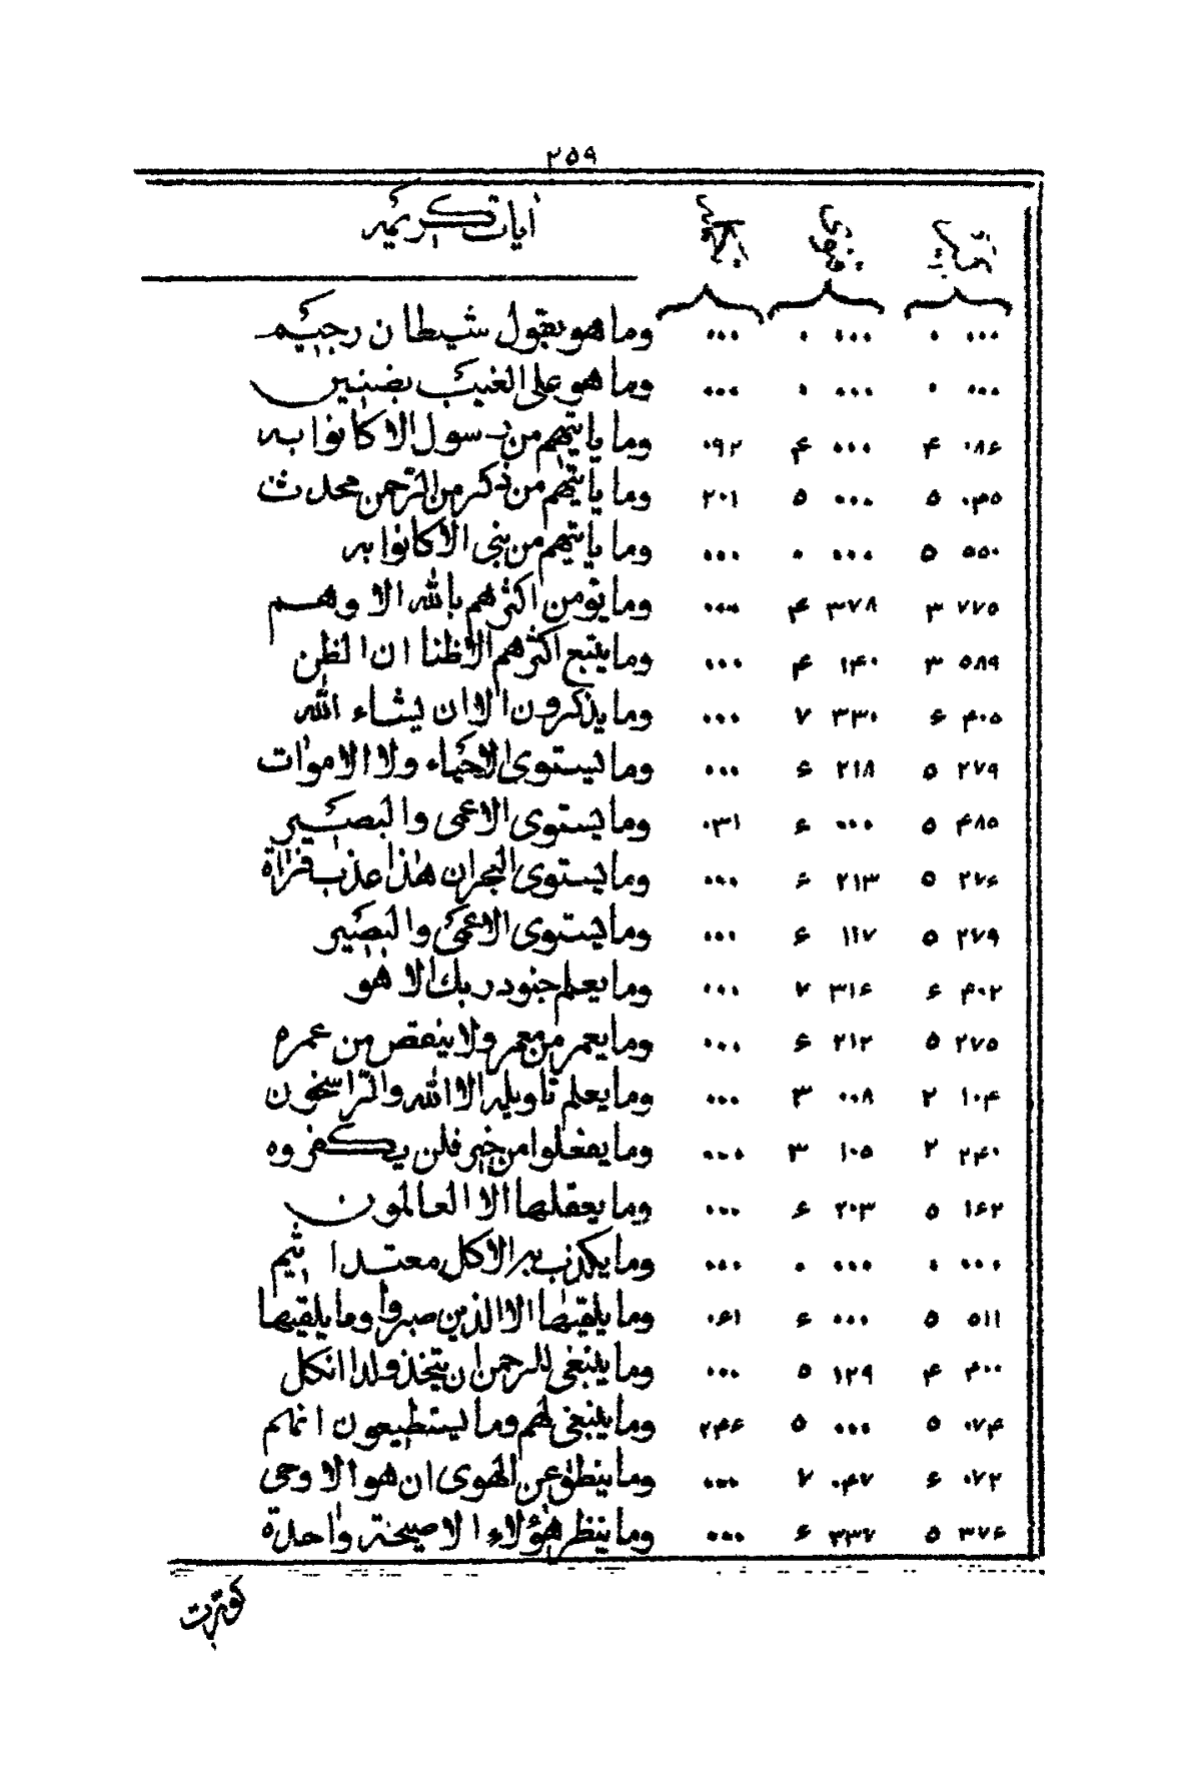 ٢٥٩
آيات كريمه
٠٠٠ ٠ ٠٠٠ ٠ ٠٠٠ وما هو بقول شيطان رجيم
٠٠٠ ٠ ٠٠٠ ٠ ٠٠٠ وما هو على الغيب بضنين
٠٨۶ ۴ ٠٠٠ ۴ ٠٩٢ وما ياتيهم من رسول الا كانوا به
٠۴٥ ٥ ٠٠٠ ٥ ٢٠١ وما ياتيهم من ذكر من الرحمن محدث
٥٥٠ ٥ ٠٠٠ ٠ ٠٠٠ وما ياتيهم من نبى الا كانوا به
٧٧٥ ٣ ٣٧٨ ۴ ٠٠٠ وما يؤمن اكثرهم بالله الا وهم
٥٨٩ ٣ ١۴٠ ۴ ٠٠٠ وما يتبع اكثرهم الا ظنا ان الظن
۴٠٥ ۶ ٣٣٠ ٧ ٠٠٠ وما يذكرون الا ان يشاء الله
٢٧٩ ٥ ٢١٨ ۶ ٠٠٠ وما يستوى الاحياء ولا الاموات
۴٨٥ ٥ ٠٠٠ ۶ ٠٣١ وما يستوى الاعمى والبصير
٢٧۶ ٥ ٢١٣ ۶ ٠٠٠ وما يستوى البحران هذا عذب فراة
٢٧٩ ٥ ١١٧ ۶ ٠٠٠ وما يستوى الاعمى والبصير
۴٠٢ ۶ ٣١۶ ٧ ٠٠٠ وما يعلم جنود ربك الا هو
٢٧٥ ٥ ٢١٢ ۶ ٠٠٠ وما يعمر من معمر ولا ينقص من عمره
١٠۴ ٢ ٠٠٨ ٣ ٠٠٠ وما يعلم تاويله الا الله والراسخون
٢۴٠ ٢ ١٠٥ ٣ ٠٠٠ وما يفعلوا من خير فلن يكفروه
١۶٢ ٥ ٢٠٣ ۶ ٠٠٠ وما يعقلها الا العالمون
٠٠٠ ٠ ٠٠٠ ٠ ٠٠٠ وما يكذب به الا كل معتد اثيم
٥١١ ٥ ٠٠٠ ۶ ٠۶١ وما يلقيها الا الذين صبروا وما يلقيها
۴٠٠ ۴ ١٢٩ ٥ ٠٠٠ وما ينبغى للرحمن ان يتخذ ولدا ان كل
٠٧۴ ٥ ٠٠٠ ٥ ٢۴۶ وما ينبغى لهم وما يستطيعون انهم
٠٧٢ ۶ ٠۴٧ ٧ ٠٠٠ وما ينطق عن الهوى ان هو الا وحى
٣٧۶ ٥ ٣٣٧ ۶ ٠٠٠ وما ينظر هؤلاء الا صيحة واحدة